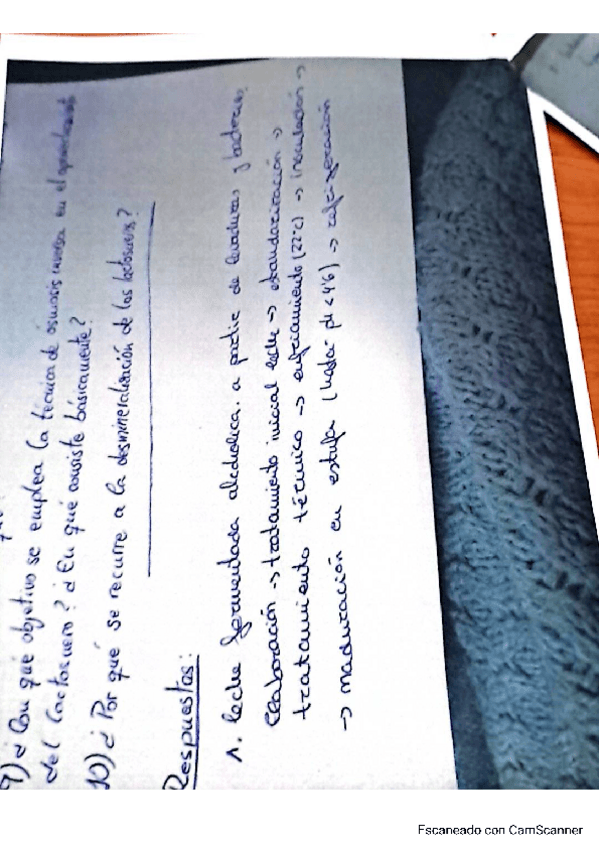 9) ¿Con qué objetivo se emplea la técnica de ósmosis inversa en el aprovechamiento
del lactosuero? ¿En qué consiste básicamente?
10) ¿Por qué se recurre a la desmineralización de los lactosueros?
Respuestas:
1. leche fermentada alcohólica. a partir de levaduras y bacterias.
Elaboración → tratamiento inicial leche → estandarización →
tratamiento térmico → enfriamiento (22ºC) → inoculación →
→ maduración en estufa (hasta pH < 4'6) → refrigeración
Escaneado con CamScanner